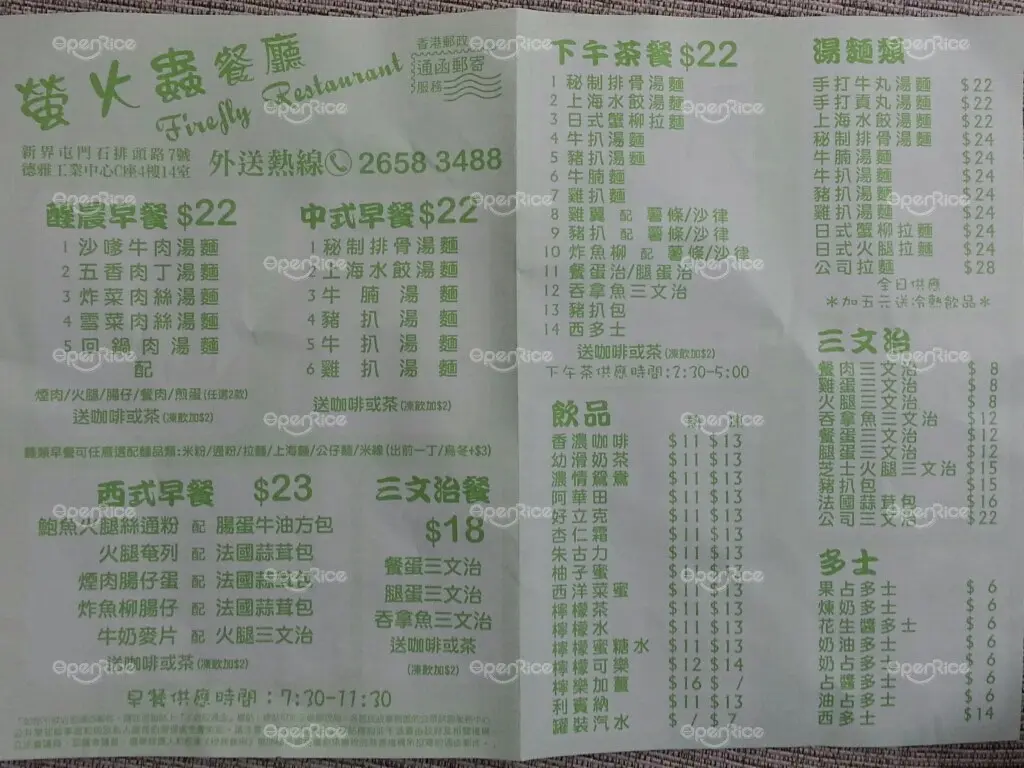 螢火蟲餐廳
Firefly Restaurant
香港郵政
通函郵寄
服務
新界屯門石排頭路7號
德雅工業中心C座4樓14室
外送熱線 2658 3488
醒晨早餐 $22
1 沙嗲牛肉湯麵
2 五香肉丁湯麵
3 炸菜肉絲湯麵
4 雪菜肉絲湯麵
5 回鍋肉湯麵
配
煙肉/火腿/腸仔/餐肉/煎蛋(任選2款)
送咖啡或茶(凍飲加$2)
中式早餐 $22
1 秘制排骨湯麵
2 上海水餃湯麵
3 牛腩湯麵
4 豬扒湯麵
5 牛扒湯麵
6 雞扒湯麵
送咖啡或茶(凍飲加$2)
米粉/通粉/拉麵/上海麵/公仔麵/米線(出前一丁/烏冬+$3)
西式早餐 $23
鮑魚火腿絲通粉 配 腸蛋牛油方包
火腿奄列 配 法國蒜茸包
煙肉腸仔蛋 配 法國蒜茸包
炸魚柳腸仔 配 法國蒜茸包
牛奶麥片 配 火腿三文治
送咖啡或茶(凍飲加$2)
三文治餐
$18
餐蛋三文治
腿蛋三文治
吞拿魚三文治
送咖啡或茶
(凍飲加$2)
早餐供應時間：7:30-11:30
下午茶餐 $22
1 秘制排骨湯麵
2 上海水餃湯麵
3 日式蟹柳拉麵
4 牛扒湯麵
5 豬扒湯麵
6 牛腩麵
7 雞扒麵
8 雞翼 配 薯條/沙律
9 豬扒 配 薯條/沙律
10 炸魚柳 配 薯條/沙律
11 餐蛋治/腿蛋治
12 吞拿魚三文治
13 豬扒包
14 西多士
送咖啡或茶(凍飲加$2)
下午茶供應時間:2:30-5:00
飲品
香濃咖啡 $11 $13
幼滑奶茶 $11 $13
濃情鴛鴦 $11 $13
阿華田 $11 $13
好立克 $11 $13
杏仁霜 $11 $13
朱古力 $11 $13
柚子蜜 $11 $13
西洋菜蜜 $11 $13
檸檬茶 $11 $13
檸檬水 $11 $13
檸檬蜜糖水 $11 $13
檸檬可樂 $12 $14
檸樂加薑 $16 $ /
利賓納 $11 $13
罐裝汽水 $ / $7
湯麵類
手打牛丸湯麵 $22
手打貢丸湯麵 $22
上海水餃湯麵 $22
秘制排骨湯麵 $24
牛腩湯麵 $24
牛扒湯麵 $24
豬扒湯麵 $24
雞扒湯麵 $24
日式蟹柳拉麵 $24
日式火腿拉麵 $24
公司拉麵 $28
全日供應
*加五元送冷熱飲品*
三文治
餐肉三文治 $ 8
雞蛋三文治 $ 8
火腿三文治 $ 8
吞拿魚三文治 $12
餐蛋三文治 $12
腿蛋三文治 $12
芝士火腿三文治 $15
豬扒包 $15
法國蒜茸包 $16
公司三文治 $22
多士
果占多士 $ 6
煉奶多士 $ 6
花生醬多士 $ 6
奶油多士 $ 6
奶占多士 $ 6
占醬多士 $ 6
油占多士 $ 6
西多士 $14